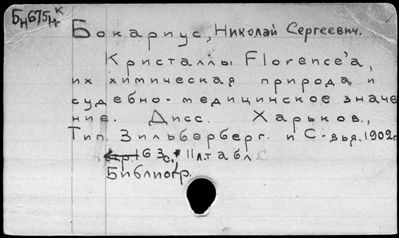 Бн675 к
Бокариус, Николай Сергеевич.
Кристаллы Florence'а,
их химическая природа и
судебно-медицинское значе
ние. Дисс. Харьков.,
Тип. Зильберберг. и С-вья. 1902г
163 с., 11 л. табл.
Библиогр.